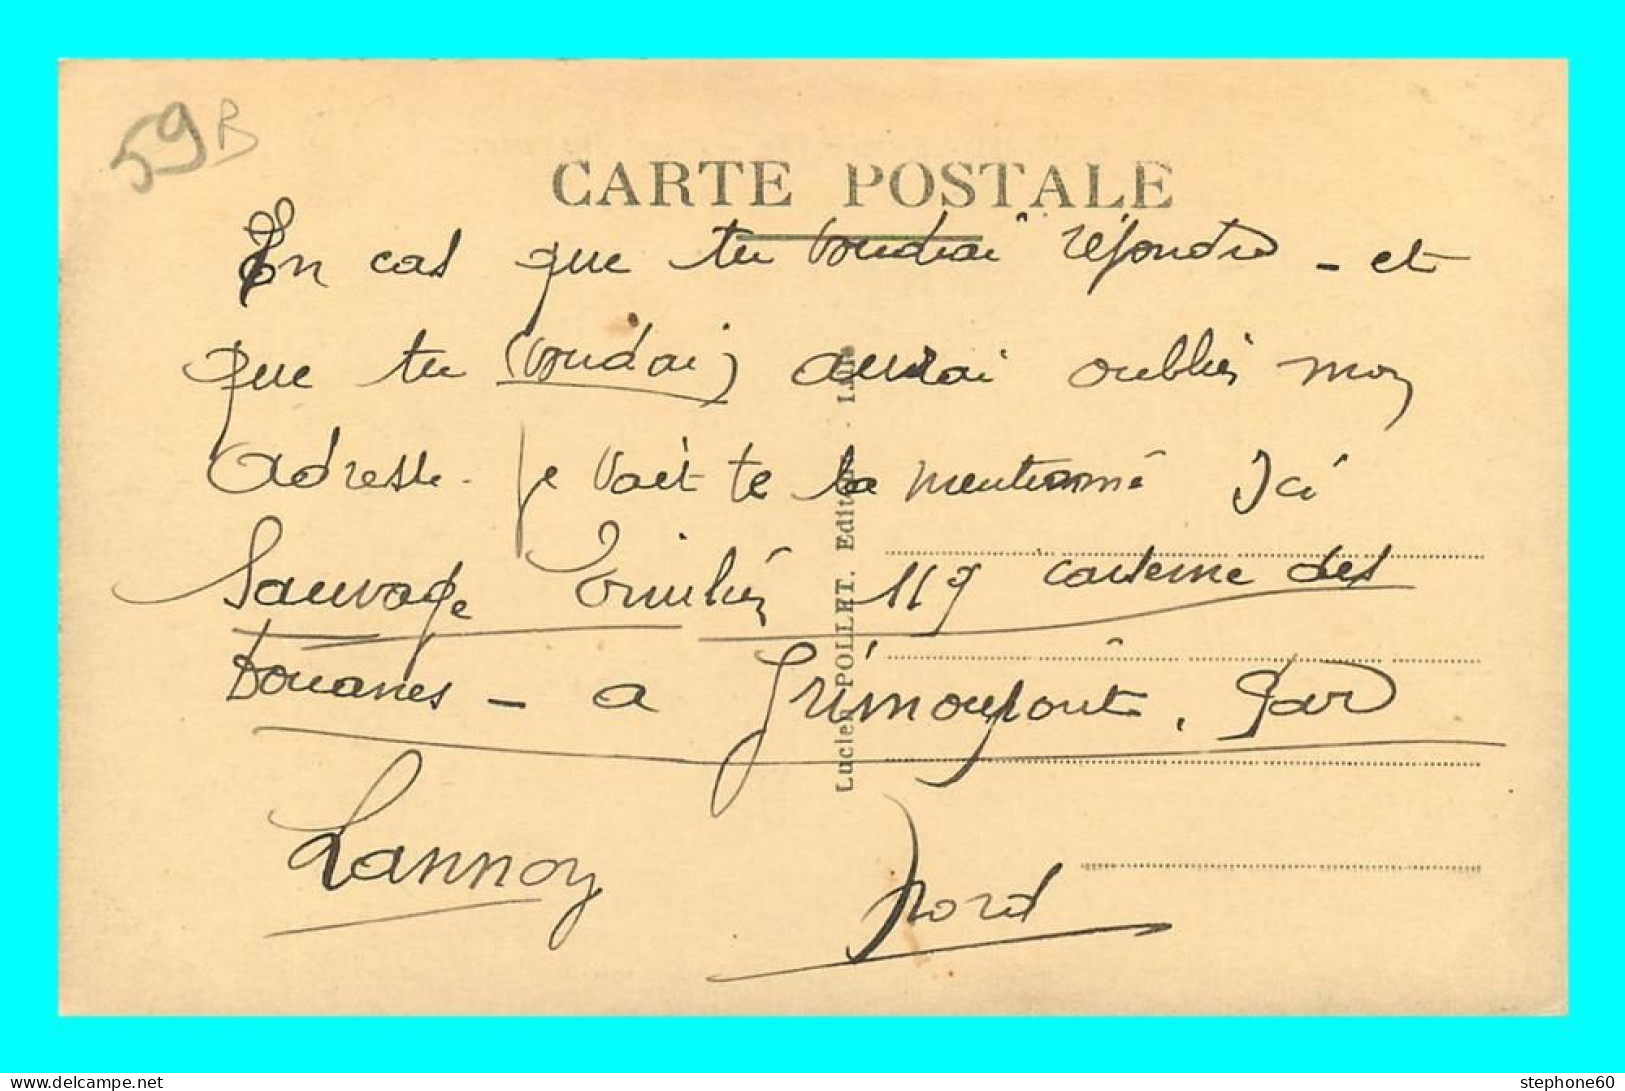 59 B
CARTE POSTALE
En cas que tu voudrai répondre - et
que tu (voudai) aurai oubliér mon
adresse. je vait te la mentionné Ici
Sauvage 119 caserne des
Douanes - a Grimonpont. par
Lannoy
Nord
Lucien POLLET. Editeur - Lille
stephone60